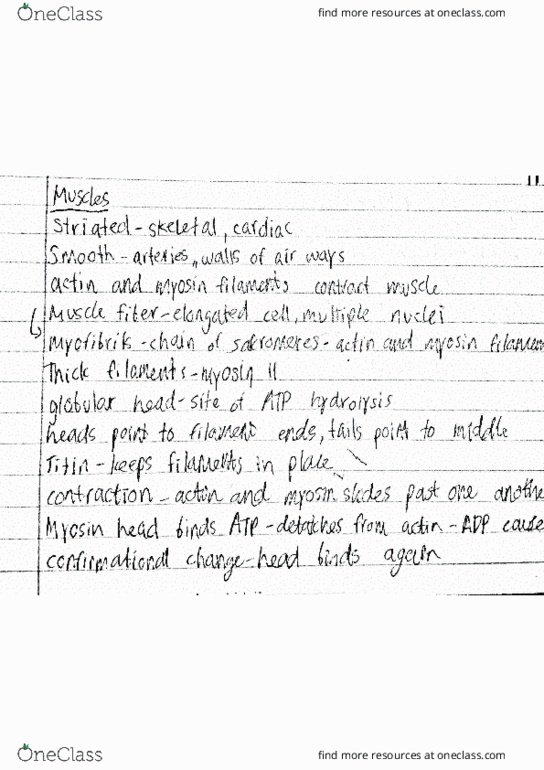 OneClass find more resources at oneclass.com
11
Muscles
Striated - skeletal, cardiac
Smooth - arteries, walls of air ways
actin and myosin filaments contract muscle
Muscle fiber - elongated cell, multiple nuclei
Myofibrils - chain of sakromeres - actin and myosin filamen
Thick filaments - myosin II
globular head - site of ATP hydrolysis
heads point to filament ends, tails point to middle
Titin - keeps filaments in place
contraction - actin and myosin slides past one anothe
Myosin head binds ATP - detatches from actin - ADP cause
confirmational change - head binds again
OneClass find more resources at oneclass.com